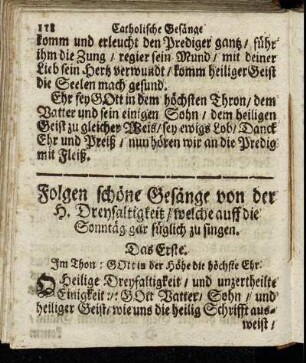 118 Catholische Gesänge
komm und erleucht den Prediger gantz / führ
ihm die Zung / regier sein Mund / mit deiner
Lieb sein Hertz verwundt / komm heiliger Geist
die Seelen mach gesund.
Ehr sey GOtt in dem höchsten Thron / dem
Vatter und sein einigen Sohn / dem heiligen
Geist zu gleicher Weis / sey ewigs Lob / Danck
Ehr und Preiß / nun hören wir an die Predig
mit Fleiß.
Folgen schöne Gesänge von der
H. Dreyfaltigkeit / welche auff die
Sonntäg gar füglich zu singen.
Das Erste.
Im Thon: GOtt in der Höhe die höchste Ehr.
O Heilige Dreyfaltigkeit / und unzertheilte
Einigkeit :/: GOtt Vatter / Sohn / und
heiliger Geist / wie uns die heilig Schrifft aus-
weist /